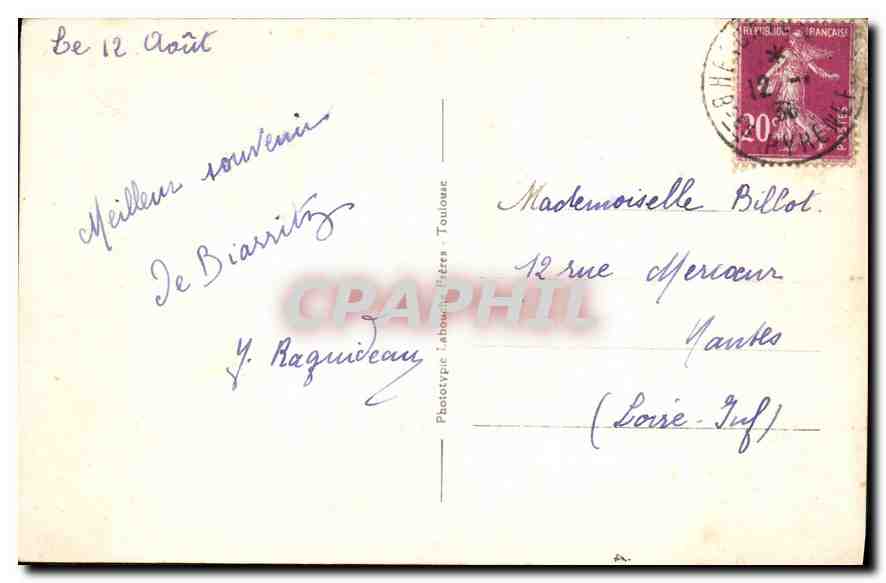 Le 12 Août
Meilleur souvenir
De Biarritz
Y. Raquideau
Phototypie Labouche Frères - Toulouse
REPUBLIQUE FRANÇAISE
20c
POSTES
12 -
36
PYRENEES
Mademoiselle Billot.
12 rue Mercœur
Nantes
(Loire-Inf)
CPAPHIL